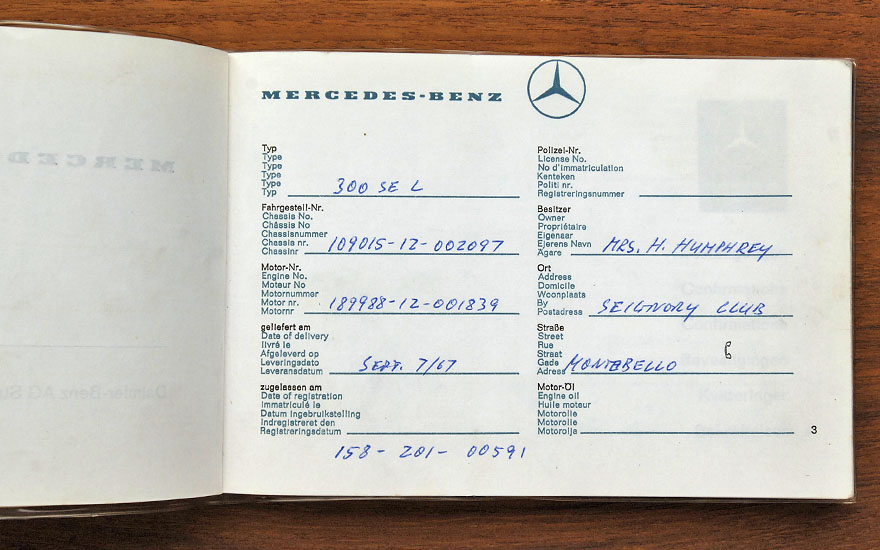 MERCEDES-BENZ
Typ
Type
Type
Type
Type
Typ 300 SE L
Fahrgestell-Nr.
Chassis No.
Châssis No
Chassisnummer
Chassis nr.
Chassinr 109015-12-002097
Motor-Nr.
Engine No.
Moteur No
Motornummer
Motor nr.
Motornr 189988-12-001839
geliefert am
Date of delivery
livré le
Afgeleverd op
Leveringsdato
Leveransdatum SEPT. 7/67
zugelassen am
Date of registration
immatriculé le
Datum ingebruikstelling
Indregistreret den
Registreringsdatum
158-201-00591
Polizei-Nr.
License No.
No d'immatriculation
Kenteken
Politi nr.
Registreringsnummer
Besitzer
Owner
Propriétaire
Eigenaar
Ejerens Navn
Ägare MRS. H. HUMPHREY
Ort
Address
Domicile
Woonplaats
By
Postadress SEIGNORY CLUB
Straße
Street
Rue
Straat
Gade
Adress MONTEBELLO
Motor-Öl
Engine oil
Huile moteur
Motorolie
Motorolie
Motorolja
3